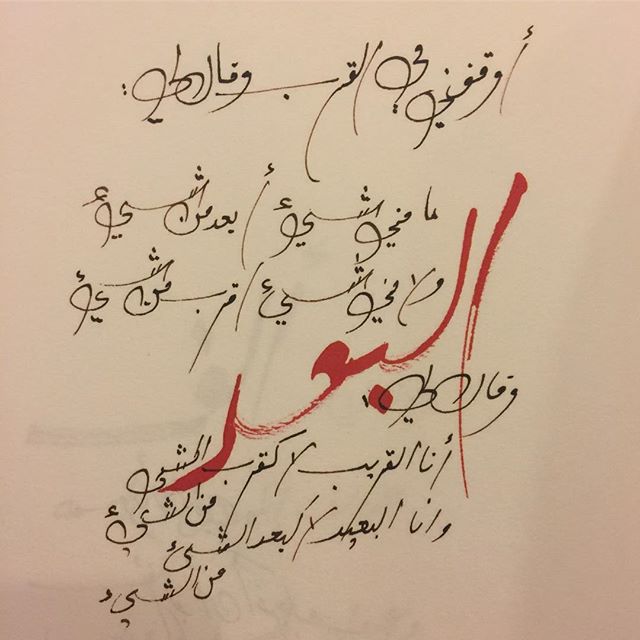 أوقفني في القرب وقال لي:
ما مني الشيء أبعد من الشيء
ولا مني الشيء أقرب من الشيء
البعد
وقال لي:
أنا القريب لا كقرب الشيء
من الشيء
وأنا البعيد لا كبعد الشيء
من الشيء